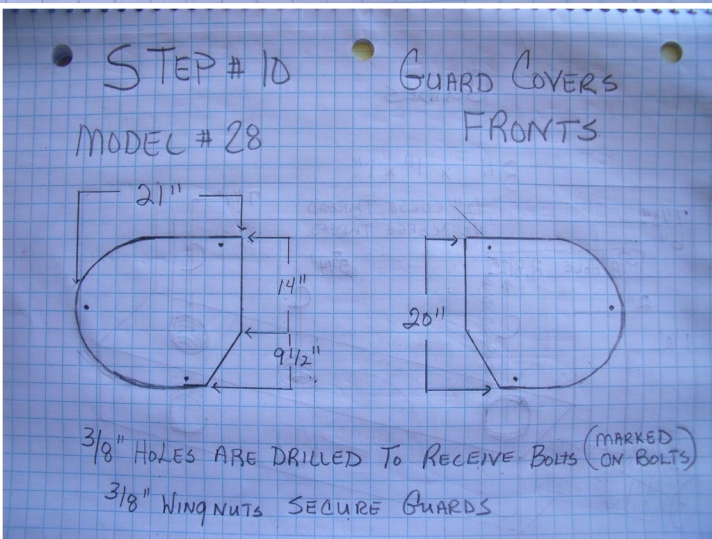 STEP # 10
GUARD COVERS
FRONTS
MODEL # 28
21"
14"
9 1/2"
20"
3/8" HOLES ARE DRILLED TO RECEIVE BOLTS (MARKED ON BOLTS)
3/8" WINGNUTS SECURE GUARDS